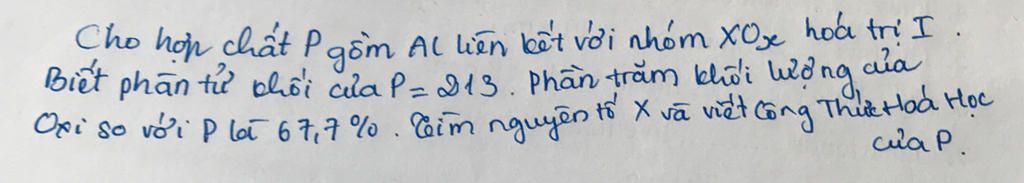 Cho hợp chất P gồm Al liên kết với nhóm XOx hoá trị I.
Biết phân tử khối của P = 213. Phần trăm khối lượng của
Oxi so với P là 67,7%. Tìm nguyên tố X và viết Công Thức Hoá Học
của P.